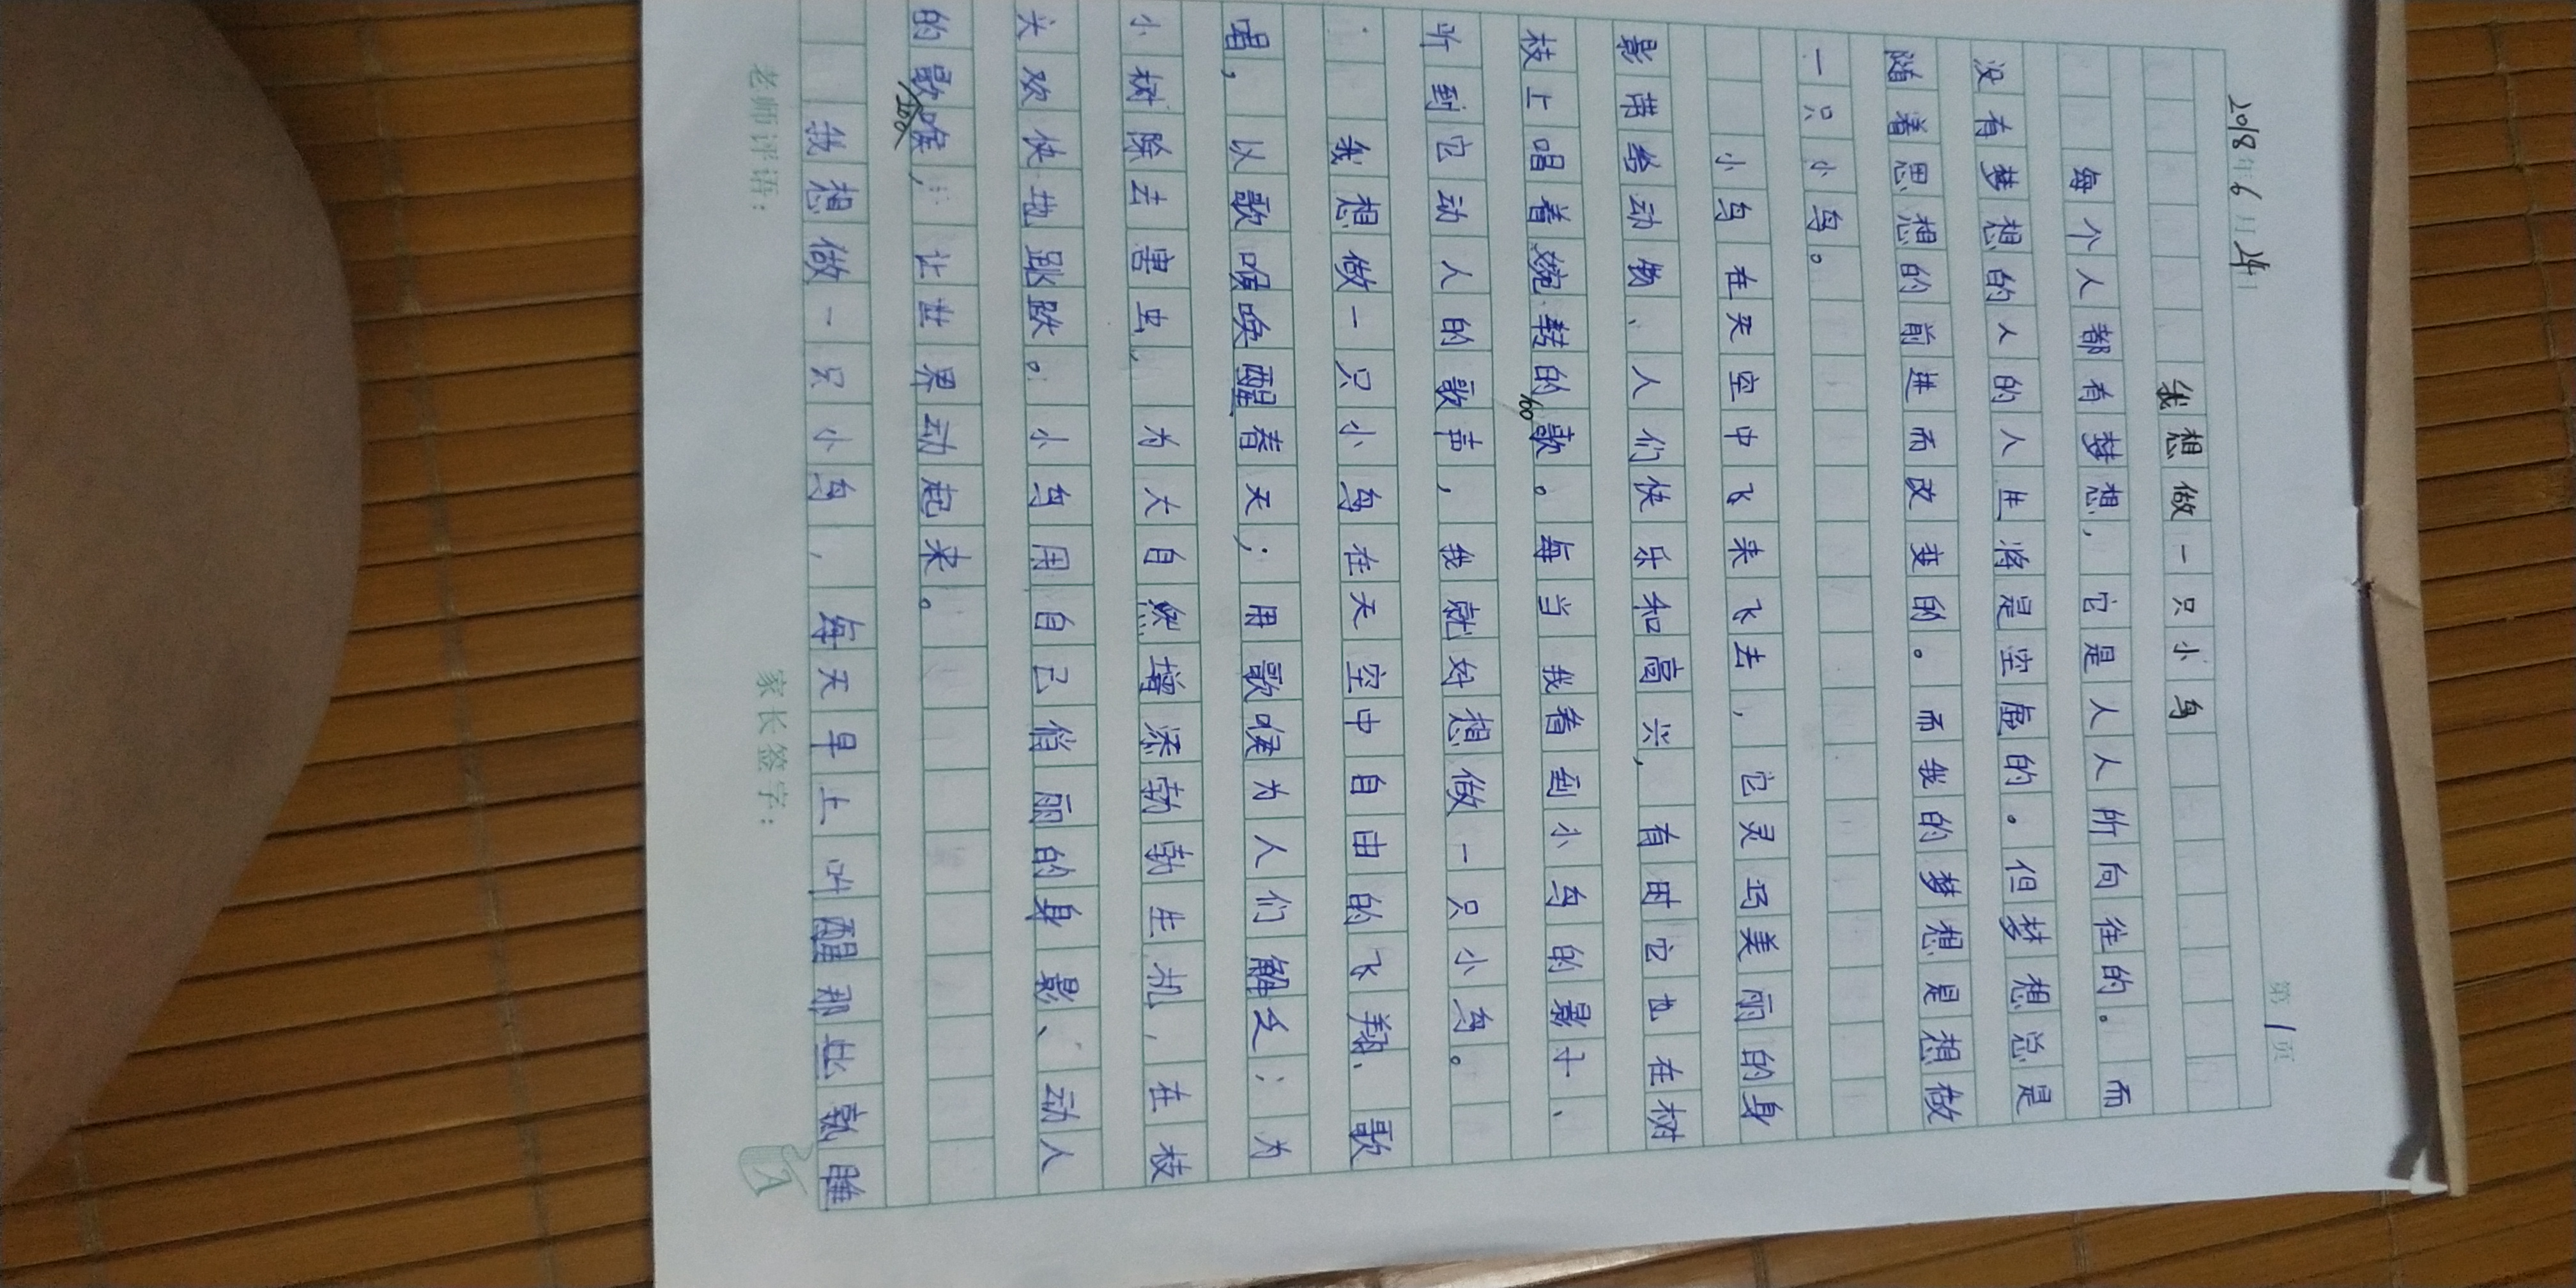 2018年6月24
第1页
我想做一只小鸟
每个人都有梦想，它是人人所向往的。而
没有梦想的人的人生将是空虚的。但梦想总是
随着思想的前进而改变的。而我的梦想是想做
一只小鸟。
小鸟在天空中飞来飞去，它灵巧美丽的身
影带给动物、人们快乐和高兴，有时它也在树
枝上唱着婉转的歌。每当我看到小鸟的影子、
100
听到它动人的歌声，我就好想做一只小鸟。
我想做一只小鸟在天空中自由的飞翔、歌
唱，以歌喉唤醒春天；用歌喉为人们解乏；为
小树除去害虫，为大自然增添勃勃生机，在枝
头欢快地跳跃。小鸟用自己俏丽的身影、动人
的歌喉，让世界动起来。
200
我想做一只小鸟，每天早上叫醒那些熟睡
老师评语：
家长签字：